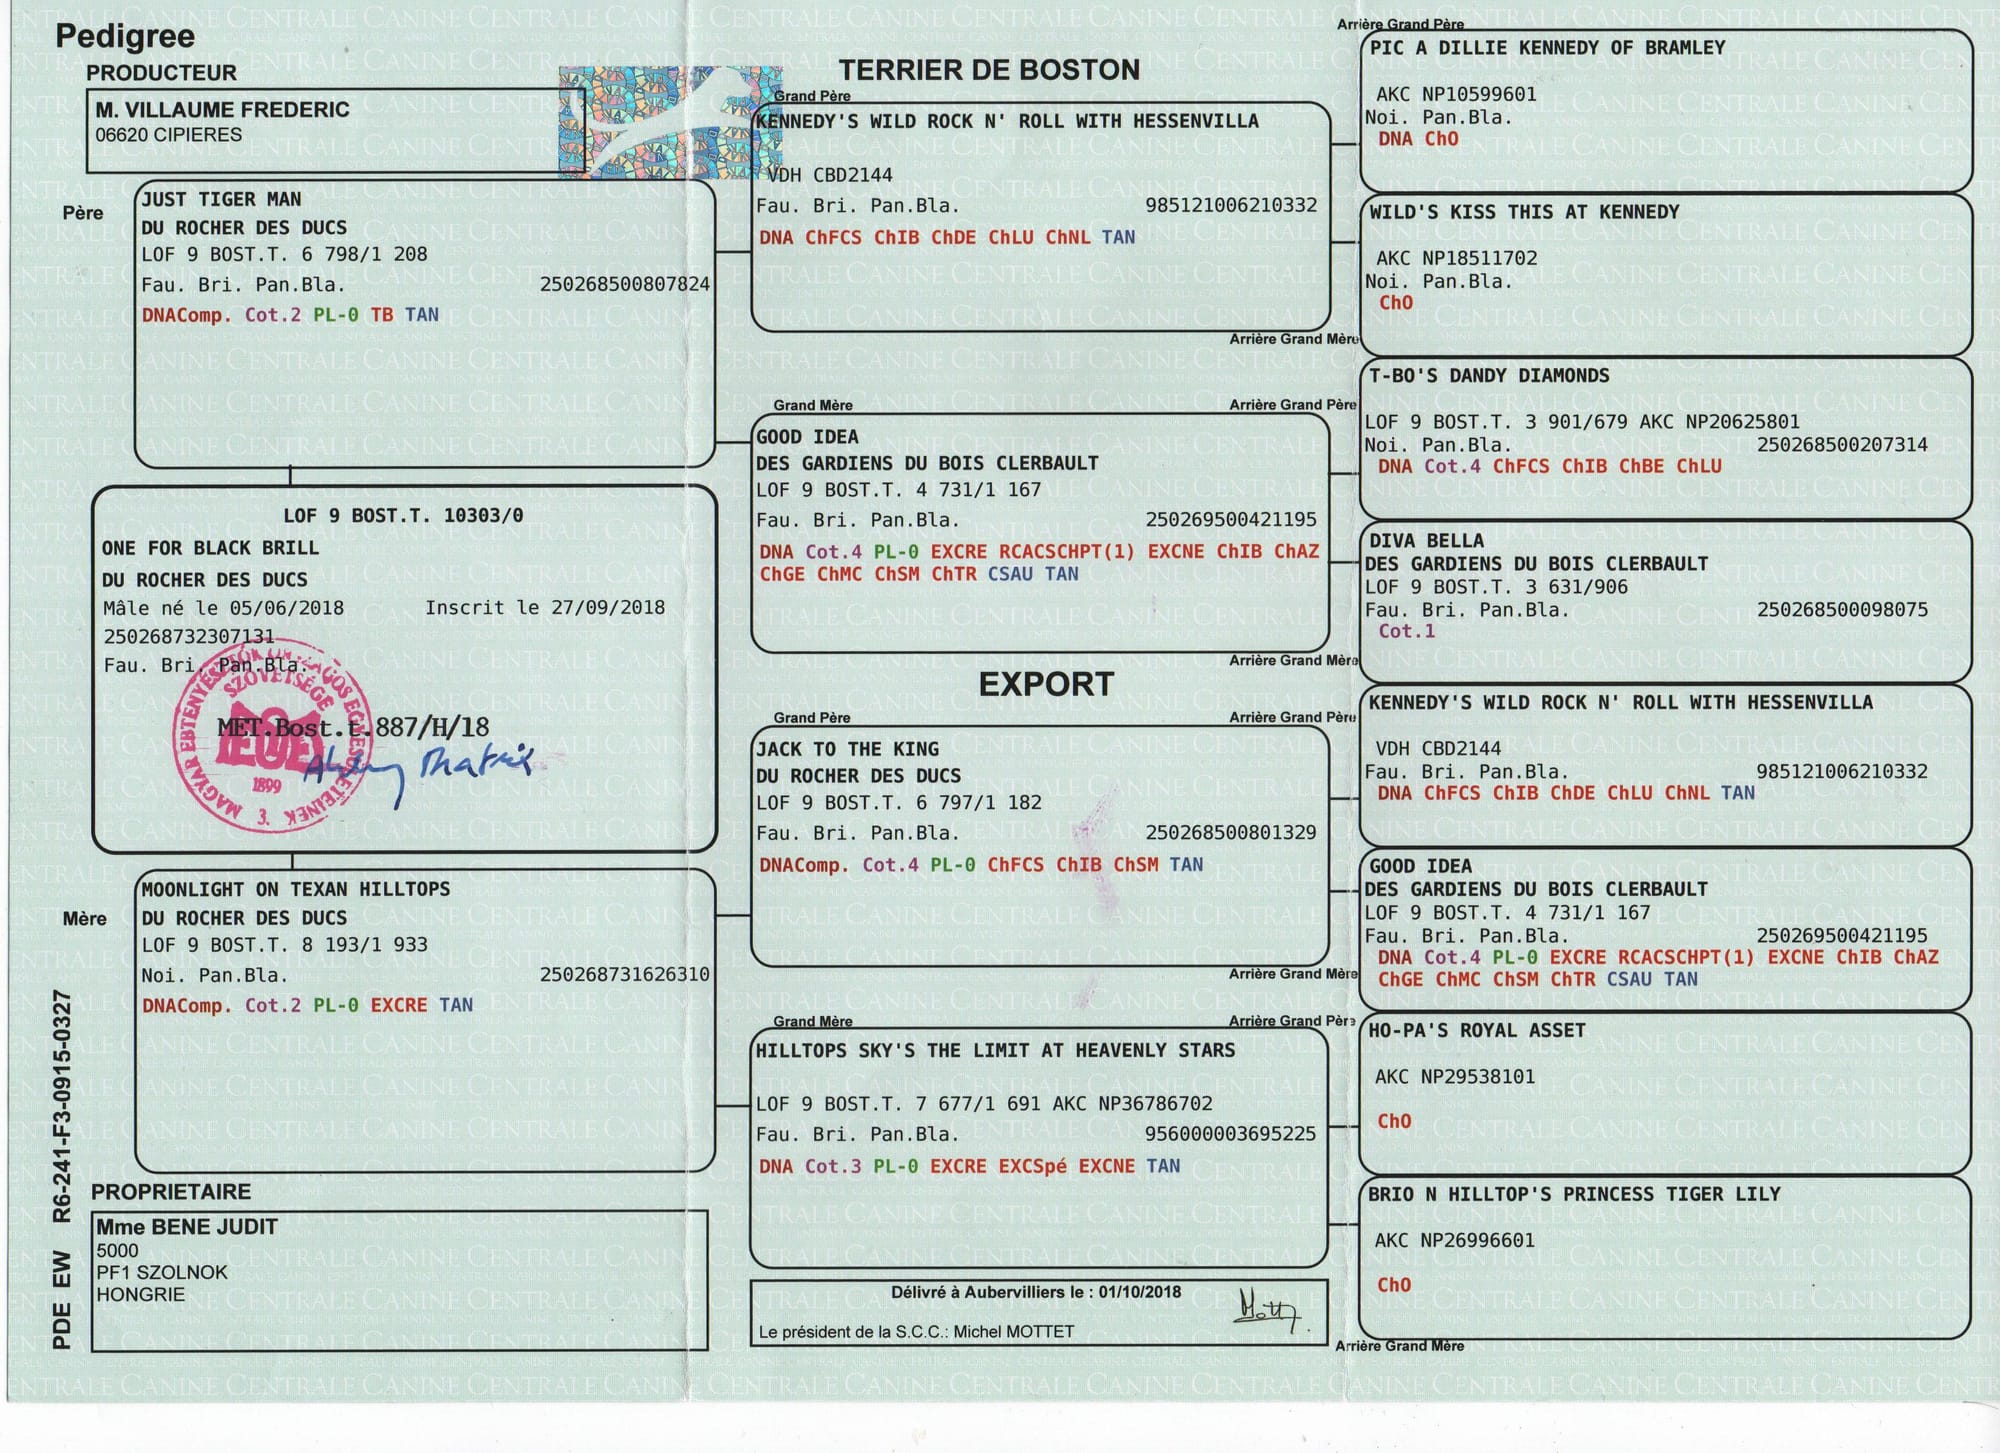 Pedigree
PRODUCTEUR
M. VILLAUME FREDERIC
06620 CIPIERES
Père
JUST TIGER MAN
DU ROCHER DES DUCS
LOF 9 BOST.T. 6 798/1 208
Fau. Bri. Pan.Bla. 250268500807824
DNAComp. Cot.2 PL-0 TB TAN
LOF 9 BOST.T. 10303/0
ONE FOR BLACK BRILL
DU ROCHER DES DUCS
Mâle né le 05/06/2018 Inscrit le 27/09/2018
250268732307131
Fau. Bri. Pan.Bla.
MET.Bost.t.887/H/18
MAGYAR EBTENYÉSZTŐK ORSZÁGOS EGYESÜLETEINEK
SZÖVETSÉGE
1899
3.
Mère
MOONLIGHT ON TEXAN HILLTOPS
DU ROCHER DES DUCS
LOF 9 BOST.T. 8 193/1 933
Noi. Pan.Bla. 250268731626310
DNAComp. Cot.2 PL-0 EXCRE TAN
PROPRIETAIRE
Mme BENE JUDIT
5000
PF1 SZOLNOK
HONGRIE
PDE EW R6-241-F3-0915-0327
TERRIER DE BOSTON
Grand Père
KENNEDY'S WILD ROCK N' ROLL WITH HESSENVILLA
VDH CBD2144
Fau. Bri. Pan.Bla. 985121006210332
DNA ChFCS ChIB ChDE ChLU ChNL TAN
Arrière Grand Mère
Grand Mère Arrière Grand Père
GOOD IDEA
DES GARDIENS DU BOIS CLERBAULT
LOF 9 BOST.T. 4 731/1 167
Fau. Bri. Pan.Bla. 250269500421195
DNA Cot.4 PL-0 EXCRE RCACSCHPT(1) EXCNE ChIB ChAZ
ChGE ChMC ChSM ChTR CSAU TAN
Arrière Grand Mère
EXPORT
Grand Père Arrière Grand Père
JACK TO THE KING
DU ROCHER DES DUCS
LOF 9 BOST.T. 6 797/1 182
Fau. Bri. Pan.Bla. 250268500801329
DNAComp. Cot.4 PL-0 ChFCS ChIB ChSM TAN
Arrière Grand Mère
Grand Mère Arrière Grand Père
HILLTOPS SKY'S THE LIMIT AT HEAVENLY STARS
LOF 9 BOST.T. 7 677/1 691 AKC NP36786702
Fau. Bri. Pan.Bla. 956000003695225
DNA Cot.3 PL-0 EXCRE EXCSpé EXCNE TAN
Délivré à Aubervilliers le : 01/10/2018
Le président de la S.C.C.: Michel MOTTET
Arrière Grand Père
PIC A DILLIE KENNEDY OF BRAMLEY
AKC NP10599601
Noi. Pan.Bla.
DNA ChO
WILD'S KISS THIS AT KENNEDY
AKC NP18511702
Noi. Pan.Bla.
ChO
T-BO'S DANDY DIAMONDS
LOF 9 BOST.T. 3 901/679 AKC NP20625801
Noi. Pan.Bla. 250268500207314
DNA Cot.4 ChFCS ChIB ChBE ChLU
DIVA BELLA
DES GARDIENS DU BOIS CLERBAULT
LOF 9 BOST.T. 3 631/906
Fau. Bri. Pan.Bla. 250268500098075
Cot.1
KENNEDY'S WILD ROCK N' ROLL WITH HESSENVILLA
VDH CBD2144
Fau. Bri. Pan.Bla. 985121006210332
DNA ChFCS ChIB ChDE ChLU ChNL TAN
GOOD IDEA
DES GARDIENS DU BOIS CLERBAULT
LOF 9 BOST.T. 4 731/1 167
Fau. Bri. Pan.Bla. 250269500421195
DNA Cot.4 PL-0 EXCRE RCACSCHPT(1) EXCNE ChIB ChAZ
ChGE ChMC ChSM ChTR CSAU TAN
HO-PA'S ROYAL ASSET
AKC NP29538101
ChO
BRIO N HILLTOP'S PRINCESS TIGER LILY
AKC NP26996601
ChO
Arrière Grand Mère